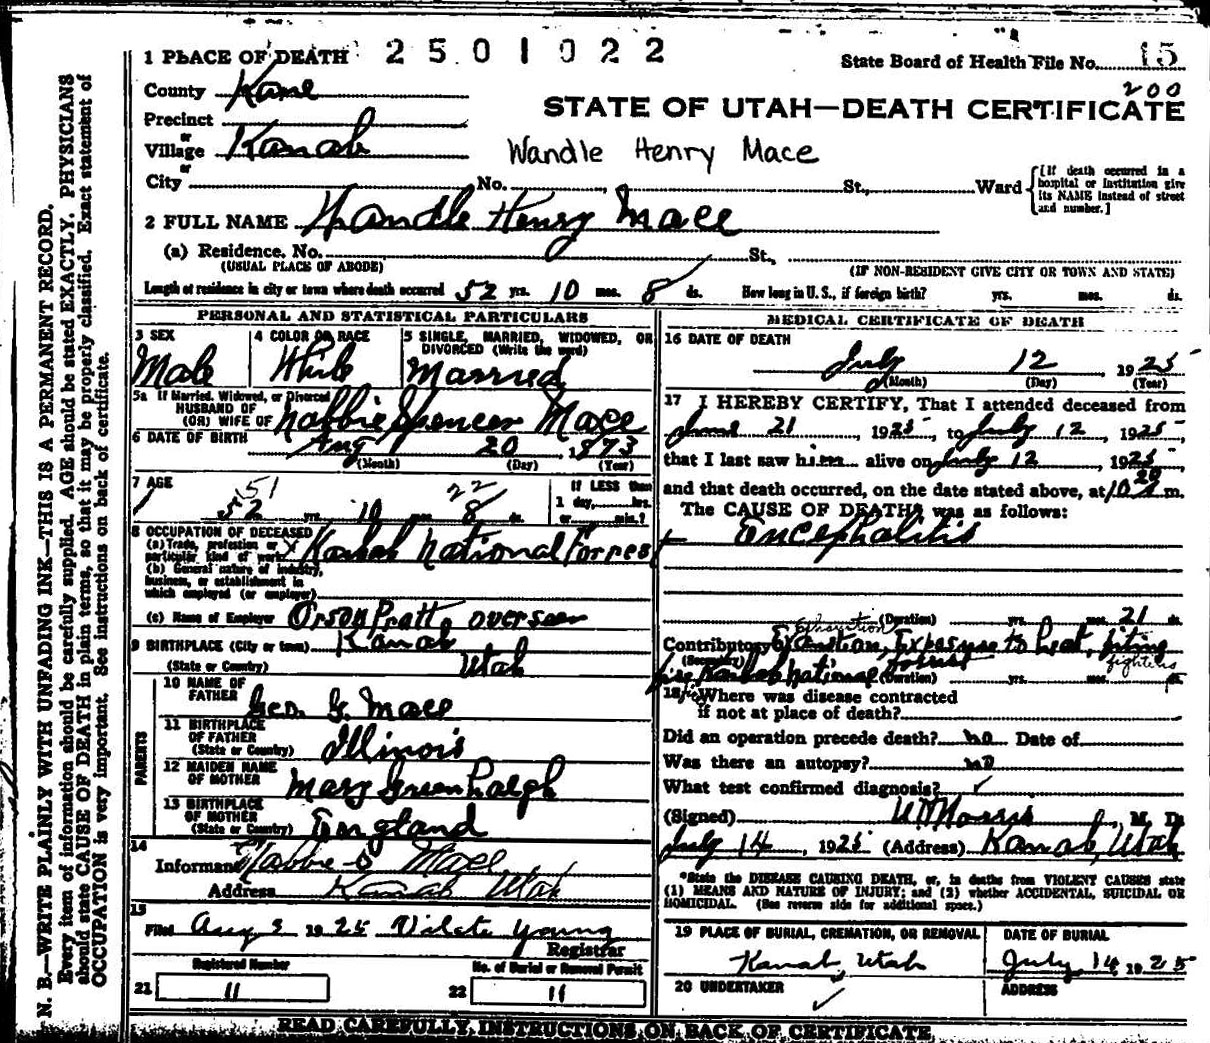 1 PLACE OF DEATH 2501022
State Board of Health File No. 15
200
County Kane
STATE OF UTAH—DEATH CERTIFICATE
Precinct
or
Village Kanab
Wandle Henry Mace
or
City No. St., Ward
[If death occurred in a hospital or institution give its NAME instead of street and number.]
2 FULL NAME Wandle Henry Mace
(a) Residence. No. St.,
(USUAL PLACE OF ABODE) (IF NON-RESIDENT GIVE CITY OR TOWN AND STATE)
Length of residence in city or town where death occurred 52 yrs. 10 mos. 8 ds. How long in U. S., if foreign birth? yrs. mos. ds.
PERSONAL AND STATISTICAL PARTICULARS
3 SEX
Male
4 COLOR OR RACE
White
5 SINGLE, MARRIED, WIDOWED, OR DIVORCED (Write the word)
Married
5a If Married, Widowed, or Divorced
HUSBAND OF
(OR) WIFE OF Nabbie Spencer Mace
6 DATE OF BIRTH Aug 20 1873
(Month) (Day) (Year)
7 AGE
51 22
52 yrs. 10 mos. 8 ds.
If LESS than
1 day, hrs.
or min.?
8 OCCUPATION OF DECEASED
(a) Trade, profession or particular kind of work Kaibab National Forrest
(b) General nature of industry, business, or establishment in which employed (or employer)
(c) Name of Employer Orson Pratt, overseer
9 BIRTHPLACE (City or town) Kanab
(State or Country) Utah
PARENTS
10 NAME OF FATHER Geo. G. Mace
11 BIRTHPLACE OF FATHER
(State or Country) Illinois
12 MAIDEN NAME OF MOTHER Mary Greenhalgh
13 BIRTHPLACE OF MOTHER
(State or Country) England
14
Informant Nabbie S Mace
Address Kanab Utah
15
Filed Aug 1925 Vilate Young
Registrar
Registered Number
21 11
No. of Burial or Removal Permit
22 11
MEDICAL CERTIFICATE OF DEATH
16 DATE OF DEATH
July 12 1925
(Month) (Day) (Year)
17 I HEREBY CERTIFY, That I attended deceased from
June 21, 1925, to July 12, 1925,
that I last saw him alive on July 12, 1925
and that death occurred, on the date stated above, at m.
The CAUSE OF DEATH* was as follows:
Encephalitis
(Duration) yrs. mos. 21 ds.
Exhaustion
Contributory Exaustion, Exposure to heat, fiting
(Secondary) fire Kaibab National Forrest fighters
(Duration) yrs. mos. ds.
18 Where was disease contracted
if not at place of death?
Did an operation precede death? no Date of
Was there an autopsy? no
What test confirmed diagnosis?
(Signed) Norris, M. D.
July 14, 1925 (Address) Kanab, Utah
*State the DISEASE CAUSING DEATH, or, in deaths from VIOLENT CAUSES state
(1) MEANS AND NATURE OF INJURY; and (2) whether ACCIDENTAL, SUICIDAL OR
HOMICIDAL. (See reverse side for additional space.)
19 PLACE OF BURIAL, CREMATION, OR REMOVAL
Kanab, Utah
DATE OF BURIAL
July 14 1925
20 UNDERTAKER
ADDRESS
READ CAREFULLY, INSTRUCTIONS ON BACK OF CERTIFICATE
N. B.—WRITE PLAINLY WITH UNFADING INK—THIS IS A PERMANENT RECORD.
Every item of information should be carefully supplied. AGE should be stated EXACTLY. PHYSICIANS
should state CAUSE OF DEATH in plain terms, so that it may be properly classified. Exact statement of
OCCUPATION is very important. See instructions on back of certificate.